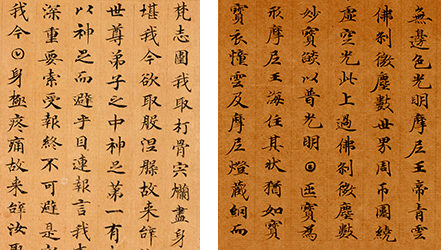 梵志圍我取打骨宍爛盡身
堪我今欲取般涅槃故来辤
世尊弟子之中神足第一有
以神足而避乎目連報言我
深重要索受報終不可避是
我今日身極疼痛故来辤汝取
無邊色光明摩尼王帝青雲
佛刹微塵數世界周帀圍繞
虛空光此上過佛刹微塵數
妙寶燄以普光明日
寶為
形摩尼王海住其狀猶如寶
寶衣幢雲及摩尼燈藏網而